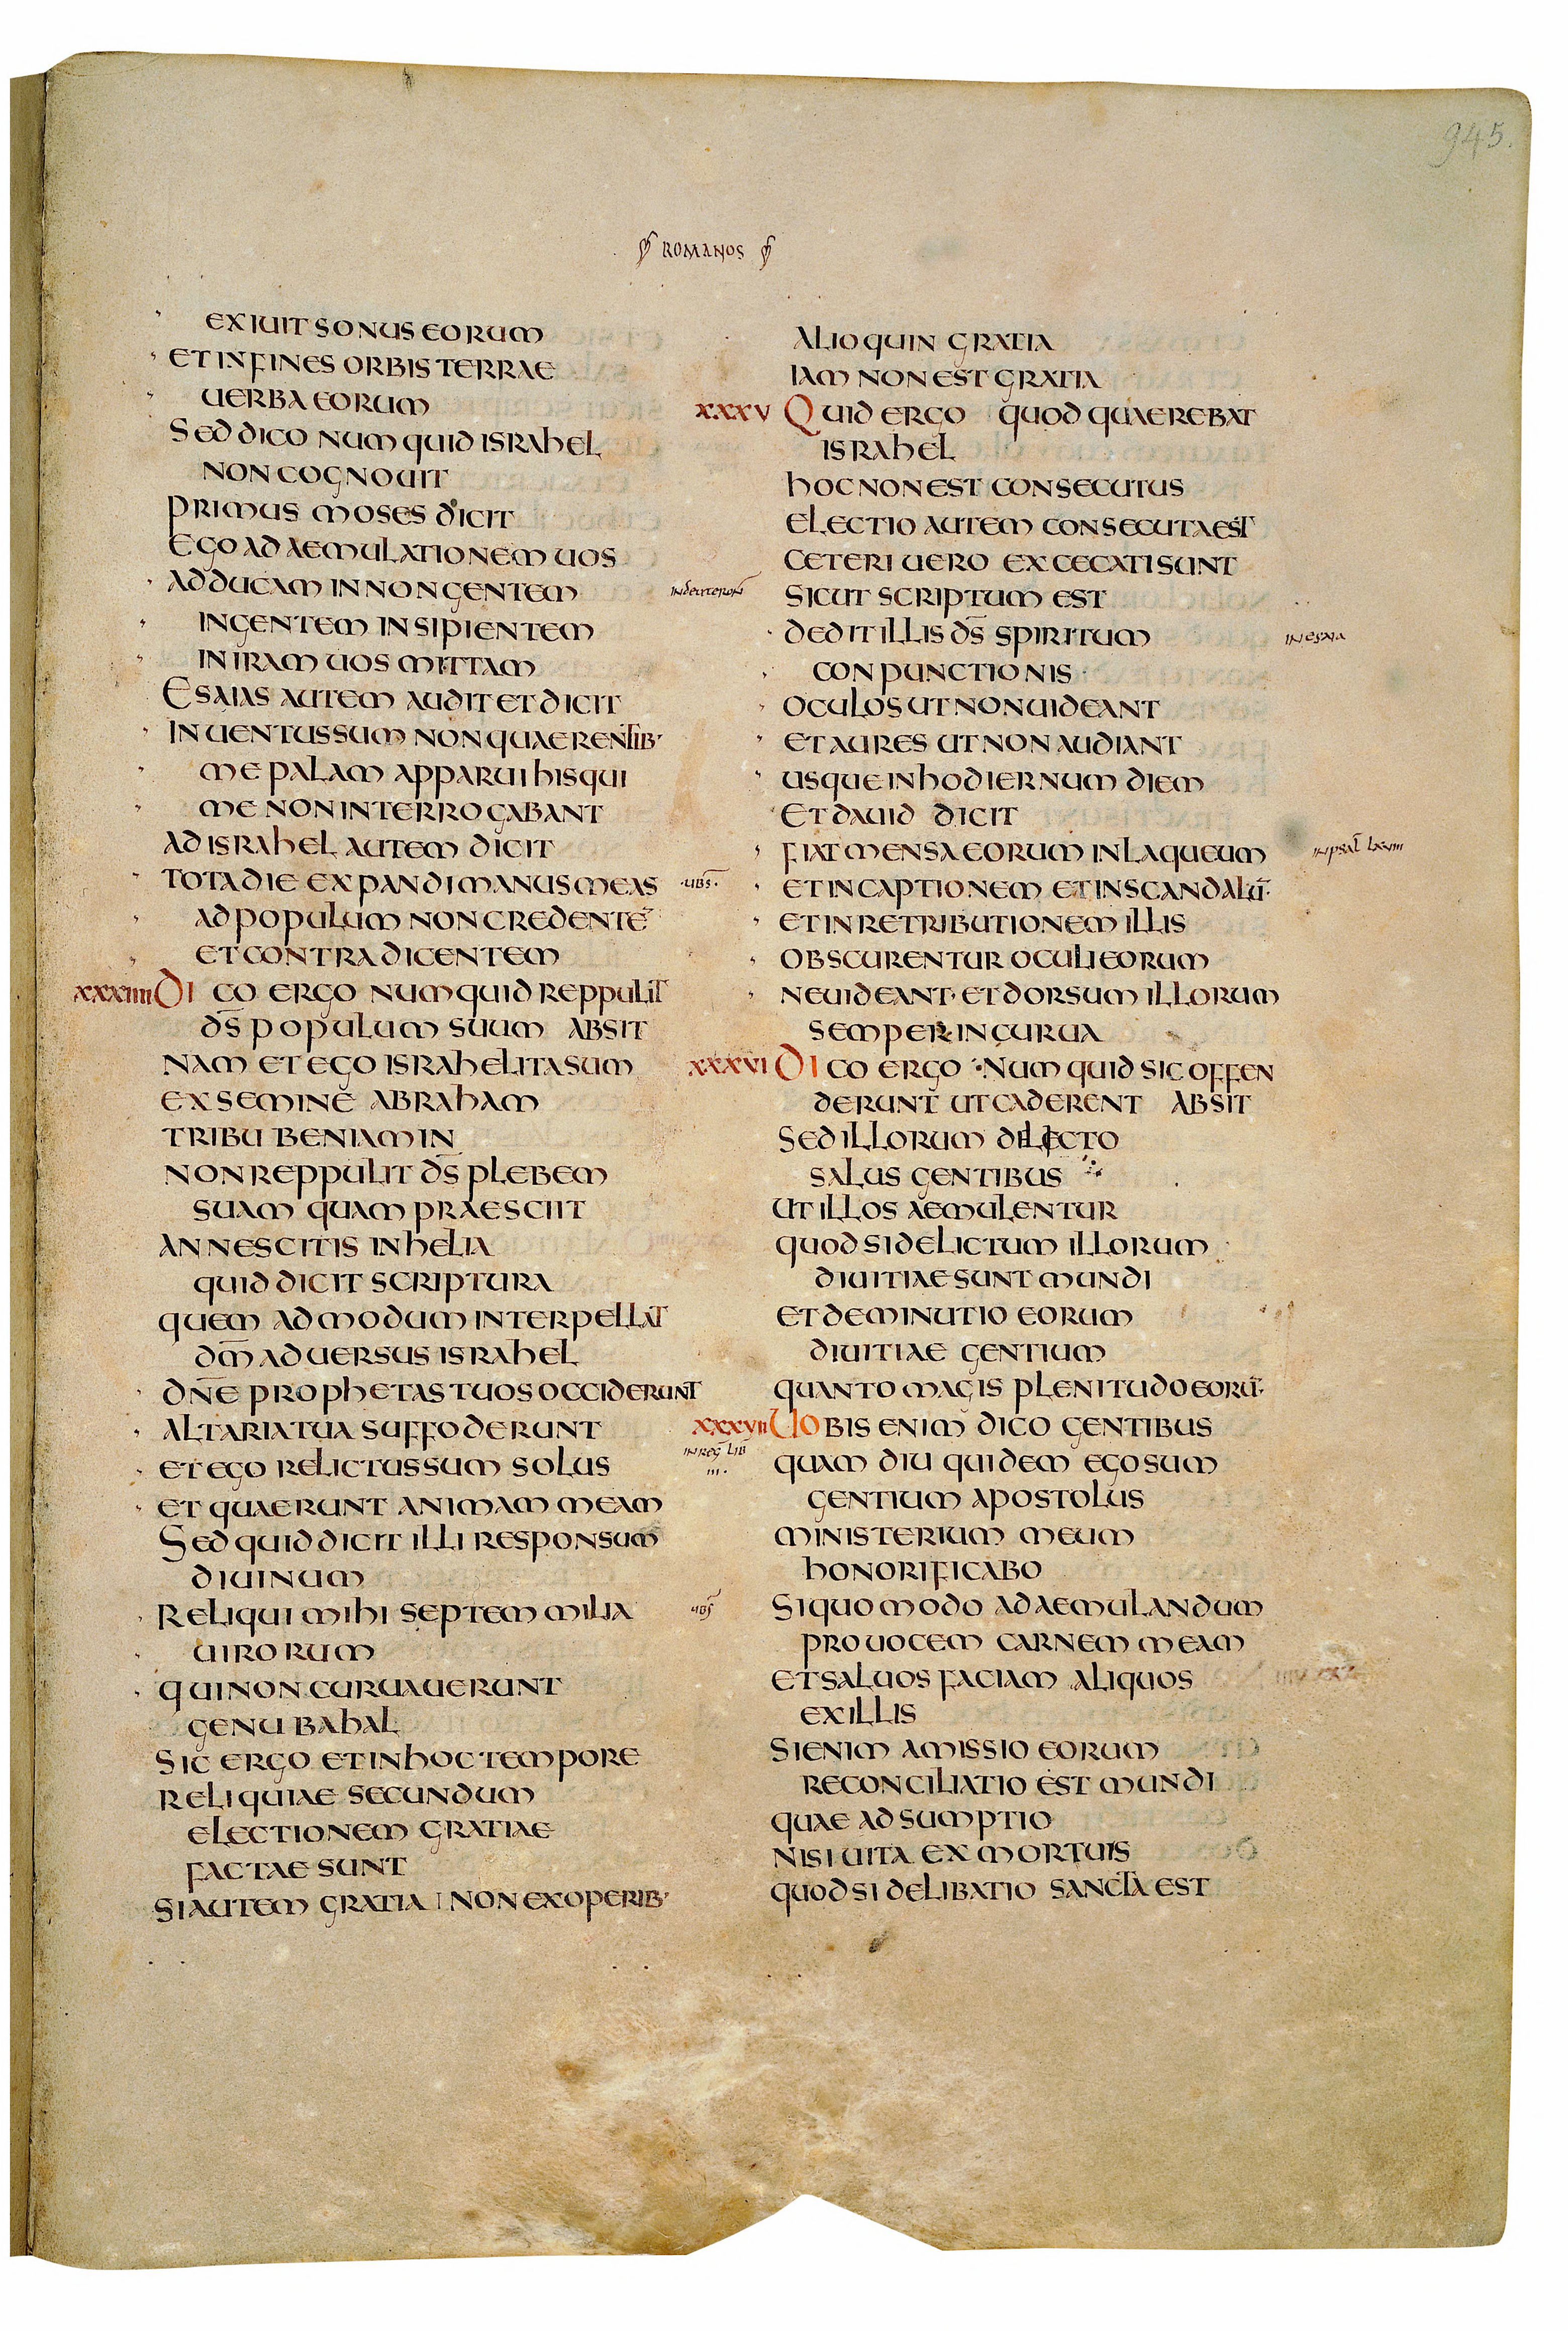 945.
ROMANOS
EXIUIT SONUS EORUM
ET IN FINES ORBIS TERRAE
UERBA EORUM
SED DICO NUMQUID ISRAHEL
NON COGNOUIT
PRIMUS MOSES DICIT
EGO AD AEMULATIONEM UOS
ADDUCAM IN NON GENTEM
IN GENTEM INSIPIENTEM
IN IRAM UOS MITTAM
ESAIAS AUTEM AUDIT ET DICIT
INUENTUS SUM NON QUAERENTIB·
ME PALAM APPARUI HIS QUI
ME NON INTERROGABANT
AD ISRAHEL AUTEM DICIT
TOTA DIE EXPANDI MANUS MEAS
AD POPULUM NON CREDENTE̅
ET CONTRADICENTEM
XXXIIII DICO ERGO NUMQUID REPPULIT
DS̅ POPULUM SUUM ABSIT
NAM ET EGO ISRAHELITA SUM
EX SEMINE ABRAHAM
TRIBU BENIAMIN
NON REPPULIT DS̅ PLEBEM
SUAM QUAM PRAESCIIT
AN NESCITIS IN HELIA
QUID DICIT SCRIPTURA
QUEM AD MODUM INTERPELLAT
DM̅ ADUERSUS ISRAHEL
DNE̅ PROPHETAS TUOS OCCIDERUNT
ALTARIA TUA SUFFODERUNT
ET EGO RELICTUS SUM SOLUS
ET QUAERUNT ANIMAM MEAM
SED QUID DICIT ILLI RESPONSUM
DIUINUM
RELIQUI MIHI SEPTEM MILIA
UIRORUM
QUI NON CURUAUERUNT
GENU BAHAL
SIC ERGO ET IN HOC TEMPORE
RELIQUIAE SECUNDUM
ELECTIONEM GRATIAE
FACTAE SUNT
SI AUTEM GRATIA NON EX OPERIB·
IN deuteron̅
·UBS̅·
IN REG̅ LIB
III·
UBS̅
ALIOQUIN GRATIA
IAM NON EST GRATIA
XXXV QUID ERGO QUOD QUAEREBAT
ISRAHEL
HOC NON EST CONSECUTUS
ELECTIO AUTEM CONSECUTA EST
CETERI UERO EXCECATI SUNT
SICUT SCRIPTUM EST
DEDIT ILLIS DS̅ SPIRITUM
CONPUNCTIONIS
OCULOS UT NON UIDEANT
ET AURES UT NON AUDIANT
USQUE IN HODIERNUM DIEM
ET DAUID DICIT
FIAT MENSA EORUM IN LAQUEUM
ET IN CAPTIONEM ET IN SCANDALU̅·
ET IN RETRIBUTIONEM ILLIS
OBSCURENTUR OCULI EORUM
NE UIDEANT· ET DORSUM ILLORUM
SEMPER INCURUA
XXXVI DICO ERGO NUMQUID SIC OFFEN
DERUNT UT CADERENT ABSIT
SED ILLORUM DELICTO
SALUS GENTIBUS
UT ILLOS AEMULENTUR
QUOD SI DELICTUM ILLORUM
DIUITIAE SUNT MUNDI
ET DEMINUTIO EORUM
DIUITIAE GENTIUM
QUANTO MAGIS PLENITUDO EORU̅·
XXXVII UOBIS ENIM DICO GENTIBUS
QUAM DIU QUIDEM EGO SUM
GENTIUM APOSTOLUS
MINISTERIUM MEUM
HONORIFICABO
SI QUO MODO AD AEMULANDUM
PROUOCEM CARNEM MEAM
ET SALUOS FACIAM ALIQUOS
EX ILLIS
SI ENIM AMISSIO EORUM
RECONCILIATIO EST MUNDI
QUAE ADSUMPTIO
NISI UITA EX MORTUIS
QUOD SI DELIBATIO SANCTA EST
IN ESAIA
IN PSAL̅ LXVIII